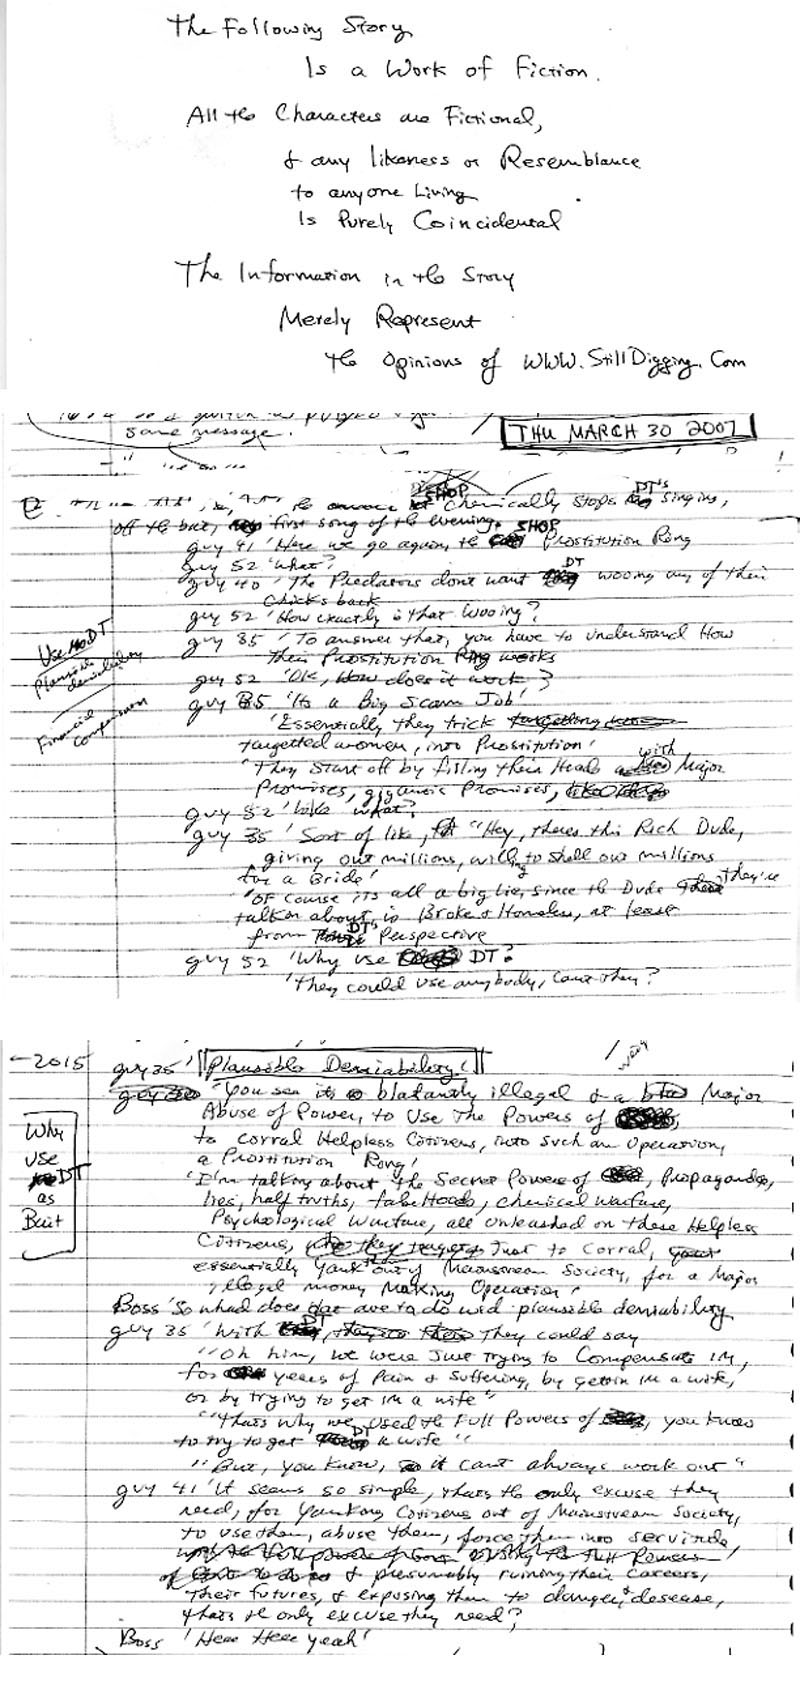 The Following Story
Is a Work of Fiction.
All the Characters are Fictional,
& any likeness or Resemblance
to anyone Living
Is Purely Coincidental
The Information in the Story
Merely Represent
the Opinions of WWW.StillDigging.Com
same message.
THU MARCH 30 2007
SHOP chemically stops DT's singing,
off the bat, first song of the evening.
guy 41 'Here we go again, the SHOP Prostitution Ring
guy 52 'What?'
guy 40 'The Predators dont want DT wooing any of their
Chicks back
guy 52 'How exactly is that Wooing?
guy 35 'To answer that, you have to understand How
their Prostitution Ring works
guy 52 'OK, How does it work?
guy 35 'Its a Big Scam Job'
'Essentially they trick
targetted women, into Prostitution'
'They start off by filling their Heads with Major
Promises, gigantic Promises,
guy 52 'Like what?'
guy 35 'Sort of like, "Hey, theres this Rich Dude,
giving out millions, willing to shell out millions
for a Bride'
'Of course its all a big lie, since the Dude they're
talkn about is Broke & Homeless, at least
from DT's Perspective
guy 52 'Why use DT?
'They could use anybody, cant they?
Use DT
Plausible
deniability
Financial
compensation
←2015
guy 35 'Plausible Deniability'
very
'You see its blatantly illegal & a Major
Abuse of Power, to Use The Powers of
to corral Helpless Citizens, into such an Operation,
a Prostitution Ring'
'I'm talking about the Secret Powers of , Propaganda,
lies, half truths, falseHoods, chemical warfare,
Psychological Warfare, all unleashed on these Helpless
Citizens, Just to corral,
essentially Yank them out of Mainstream Society, for a Major
illegal money Making Operation'
Boss 'So whad does dat ave ta do wid plausible deniability
guy 35 'With DT, They could say
"Oh him, we were Just trying to Compensate im,
for years of Pain & Suffering, by gettin im a wife,
or by trying to get im a wife"
"thats why we used the Full Powers of , you know
to try to get DT a wife"
"But, you know, it cant always work out"
guy 41 'It seems so simple, thats the only excuse they
need, for Yanking Citizens out of Mainstream Society,
to use them, abuse them, force them into servitude,
& presumably ruining their Careers,
Their futures, & exposing them to danger & desease,
thats the only excuse they need?
Boss 'Heee Heee yeah'
Why
use
DT
as
Bait